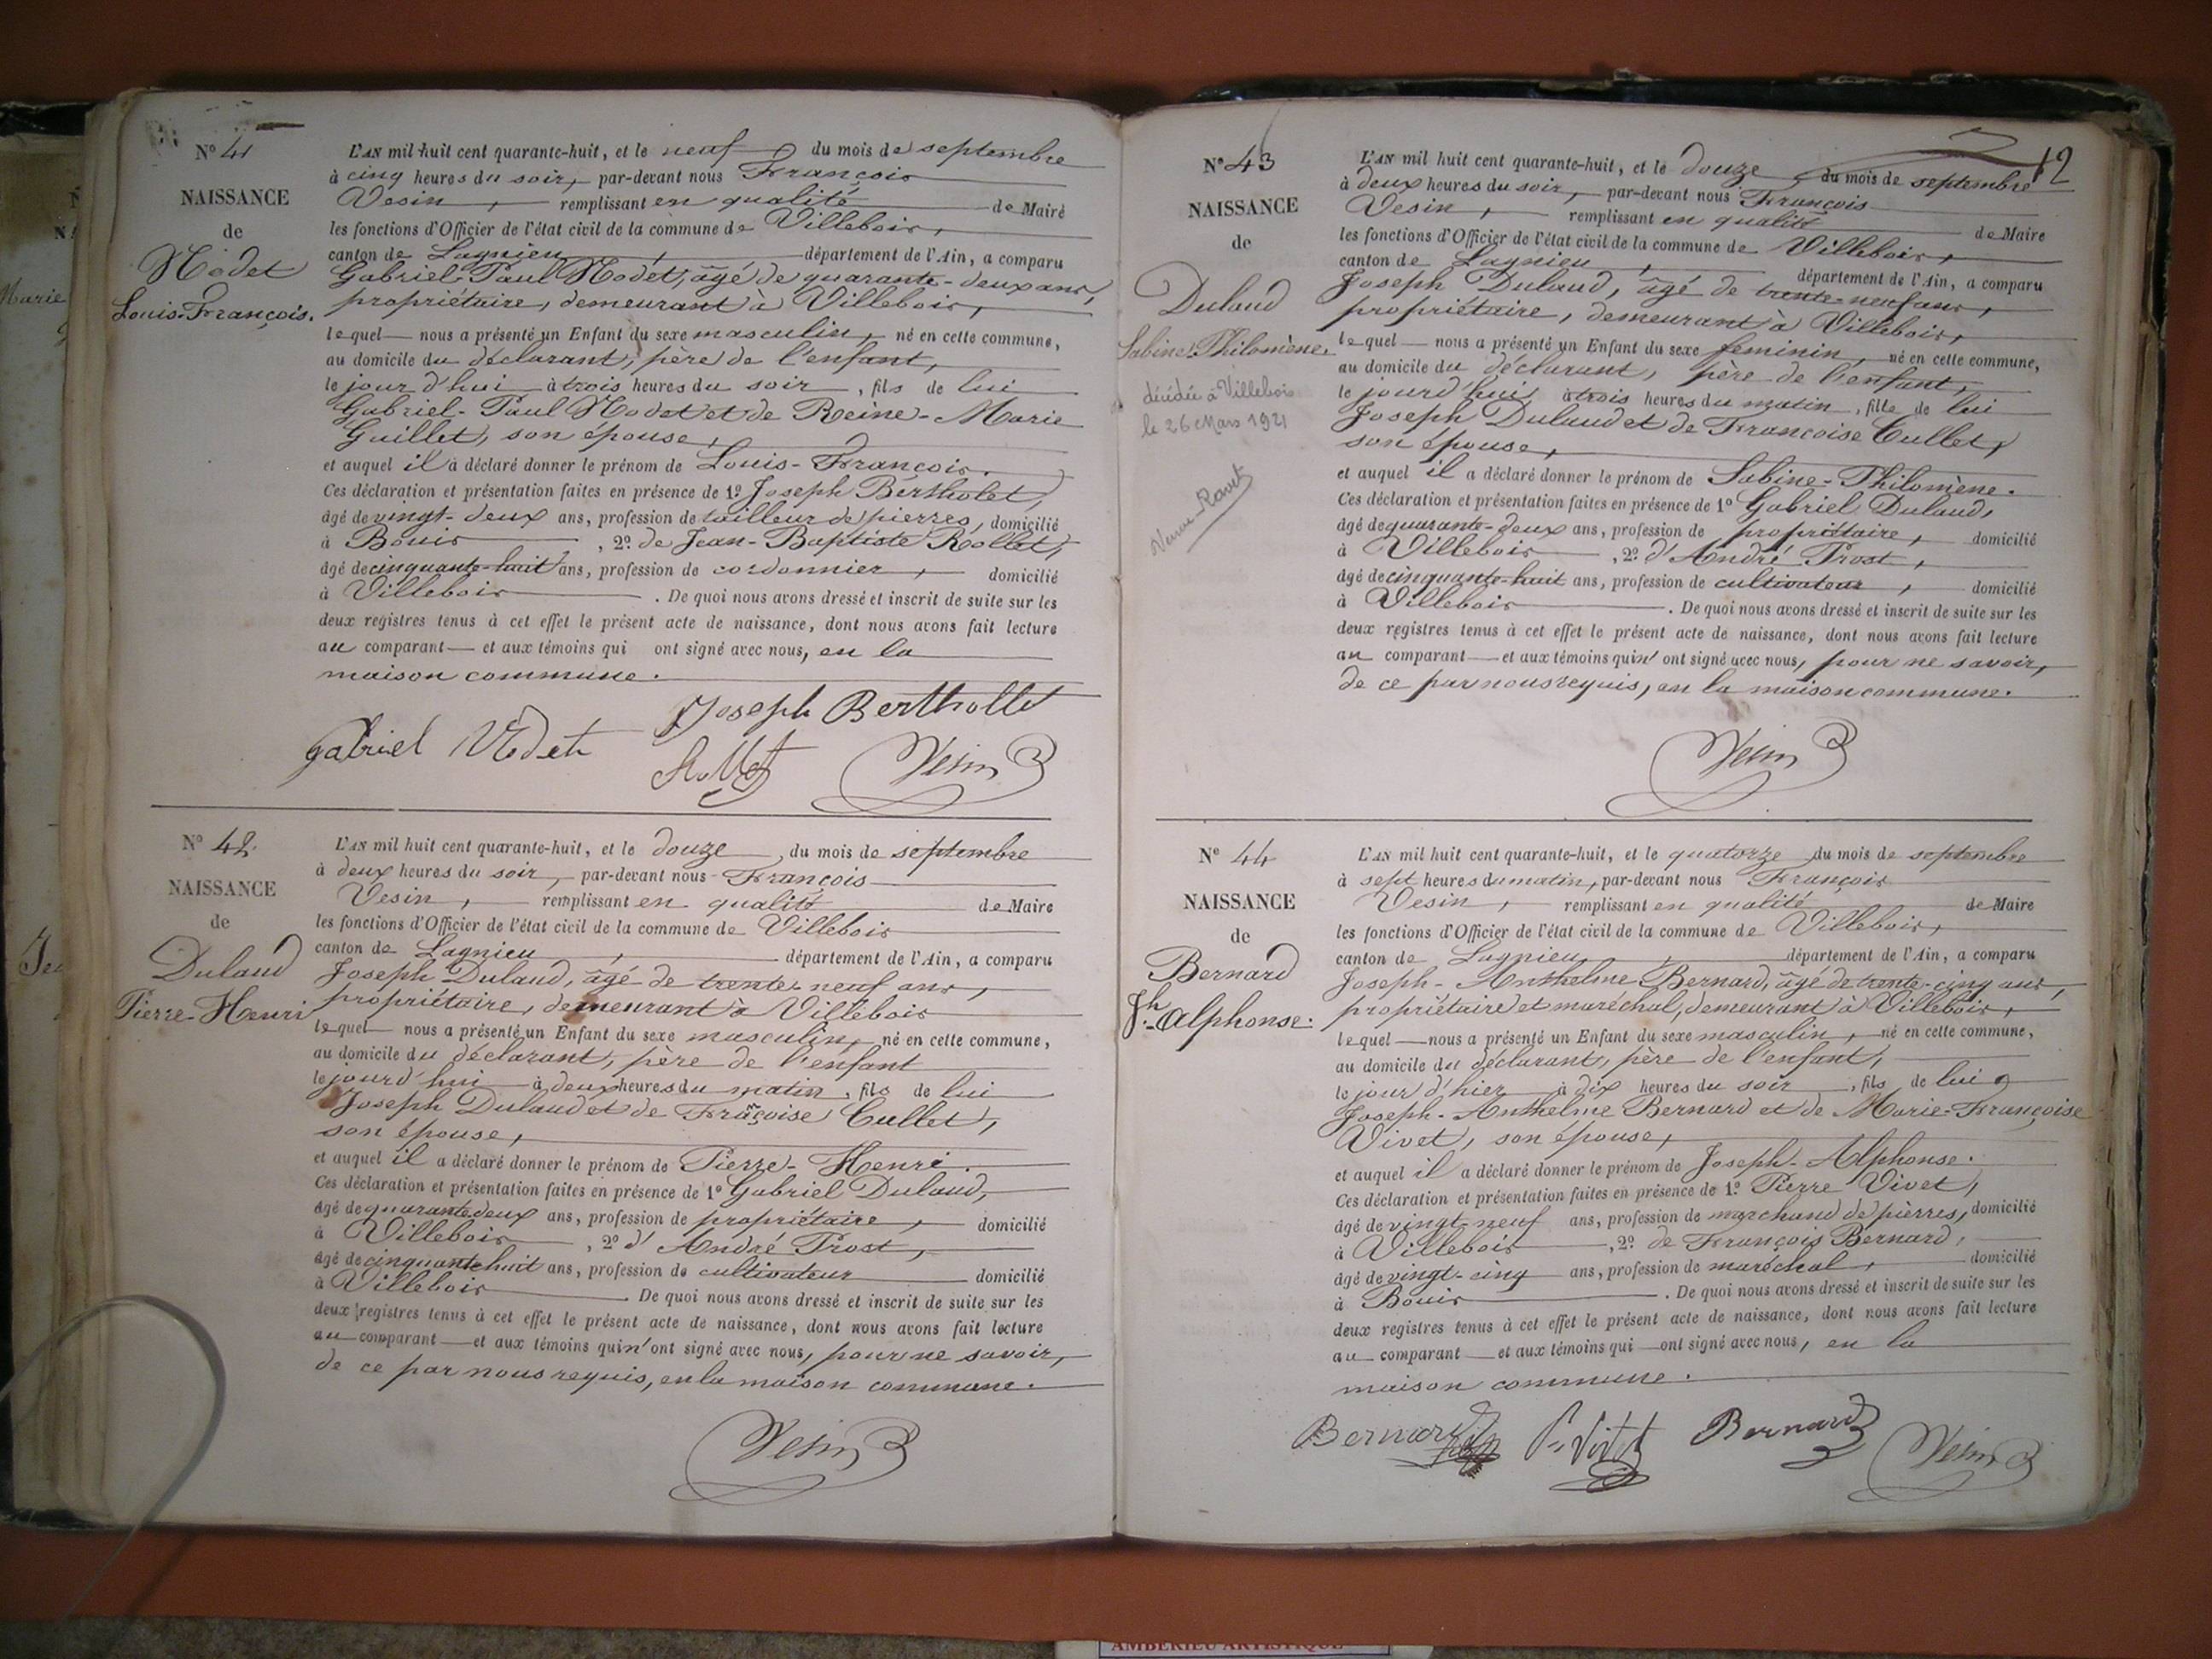 Nº 41
NAISSANCE
de
Nodet
Louis-François.
L'AN mil huit cent quarante-huit, et le neuf du mois de septembre
à cinq heures du soir, par-devant nous François
Vesin, remplissant en qualité de Maire
les fonctions d'Officier de l'état civil de la commune de Villebois,
canton de Lagnieu, département de l'Ain, a comparu
Gabriel-Paul Nodet, âgé de quarante-deux ans,
propriétaire, demeurant à Villebois,
lequel nous a présenté un Enfant du sexe masculin, né en cette commune,
au domicile du déclarant, père de l'enfant,
le jour d'hui à trois heures du soir, fils de lui
Gabriel-Paul Nodet et de Reine-Marie
Guillet, son épouse,
et auquel il a déclaré donner le prénom de Louis-François.
Ces déclaration et présentation faites en présence de 1º Joseph Bertholet,
âgé de vingt-deux ans, profession de tailleur de pierres, domicilié
à Bouis, 2º de Jean-Baptiste Rollet,
âgé de cinquante-huit ans, profession de cordonnier, domicilié
à Villebois. De quoi nous avons dressé et inscrit de suite sur les
deux registres tenus à cet effet le présent acte de naissance, dont nous avons fait lecture
au comparant et aux témoins qui ont signé avec nous, en la
maison commune.
Joseph Berthollet
gabriel Nodet
Rollet Vesin
Nº 42.
NAISSANCE
de
Dulaud
Pierre-Henri
L'AN mil huit cent quarante-huit, et le douze, du mois de septembre
à deux heures du soir, par-devant nous François
Vesin, remplissant en qualité de Maire
les fonctions d'Officier de l'état civil de la commune de Villebois
canton de Lagnieu, département de l'Ain, a comparu
Joseph Dulaud, âgé de trente-neuf ans,
propriétaire, demeurant à Villebois
lequel nous a présenté un Enfant du sexe masculin, né en cette commune,
au domicile du déclarant, père de l'enfant
le jourd'hui à deux heures du matin, fils de lui
Joseph Dulaud et de Françoise Cullet,
son épouse,
et auquel il a déclaré donner le prénom de Pierre-Henri.
Ces déclaration et présentation faites en présence de 1º Gabriel Dulaud,
âgé de quarante deux ans, profession de propriétaire, domicilié
à Villebois, 2º d'André Prost,
âgé de cinquante huit ans, profession de cultivateur domicilié
à Villebois. De quoi nous avons dressé et inscrit de suite sur les
deux registres tenus à cet effet le présent acte de naissance, dont nous avons fait lecture
au comparant et aux témoins qui n'ont signé avec nous, pour ne savoir,
de ce par nous requis, en la maison commune.
Vesin
12
Nº 43
NAISSANCE
de
Dulaud
Sabine-Philomène.
décédée à Villebois
le 26 Mars 1921
L'AN mil huit cent quarante-huit, et le douze, du mois de septembre
à deux heures du soir, par-devant nous François
Vesin, remplissant en qualité de Maire
les fonctions d'Officier de l'état civil de la commune de Villebois,
canton de Lagnieu, département de l'Ain, a comparu
Joseph Dulaud, âgé de trente-neuf ans,
propriétaire, demeurant à Villebois,
lequel nous a présenté un Enfant du sexe feminin, né en cette commune,
au domicile du déclarant, père de l'enfant,
le jourd'hui à trois heures du matin, fille de lui
Joseph Dulaud et de Françoise Cullet,
son épouse,
et auquel il a déclaré donner le prénom de Sabine-Philomène.
Ces déclaration et présentation faites en présence de 1º Gabriel Dulaud,
âgé de quarante-deux ans, profession de propriétaire, domicilié
à Villebois, 2º d'André Prost,
âgé de cinquante-huit ans, profession de cultivateur, domicilié
à Villebois. De quoi nous avons dressé et inscrit de suite sur les
deux registres tenus à cet effet le présent acte de naissance, dont nous avons fait lecture
au comparant et aux témoins qui n'ont signé avec nous, pour ne savoir,
de ce par nous requis, en la maison commune.
Vesin
Nº 44
NAISSANCE
de
Bernard
Jh-Alphonse.
L'AN mil huit cent quarante-huit, et le quatorze du mois de septembre
à sept heures du matin, par-devant nous François
Vesin, remplissant en qualité de Maire
les fonctions d'Officier de l'état civil de la commune de Villebois,
canton de Lagnieu, département de l'Ain, a comparu
Joseph-Anthelme Bernard, âgé de trente-cinq ans,
propriétaire et maréchal, demeurant à Villebois,
lequel nous a présenté un Enfant du sexe masculin, né en cette commune,
au domicile du déclarant, père de l'enfant,
le jour d'hier à dix heures du soir, fils de lui
Joseph-Anthelme Bernard et de Marie-Françoise
Vivet, son épouse,
et auquel il a déclaré donner le prénom de Joseph-Alphonse.
Ces déclaration et présentation faites en présence de 1º Pierre Vivet,
âgé de vingt-neuf ans, profession de marchand de pierres, domicilié
à Villebois, 2º de François Bernard,
âgé de vingt-cinq ans, profession de maréchal, domicilié
à Bouis. De quoi nous avons dressé et inscrit de suite sur les
deux registres tenus à cet effet le présent acte de naissance, dont nous avons fait lecture
au comparant et aux témoins qui ont signé avec nous, en la
maison commune.
Bernard P. Vivet Bernard Vesin
Marie
AMBERIEU ARTISTIQUE